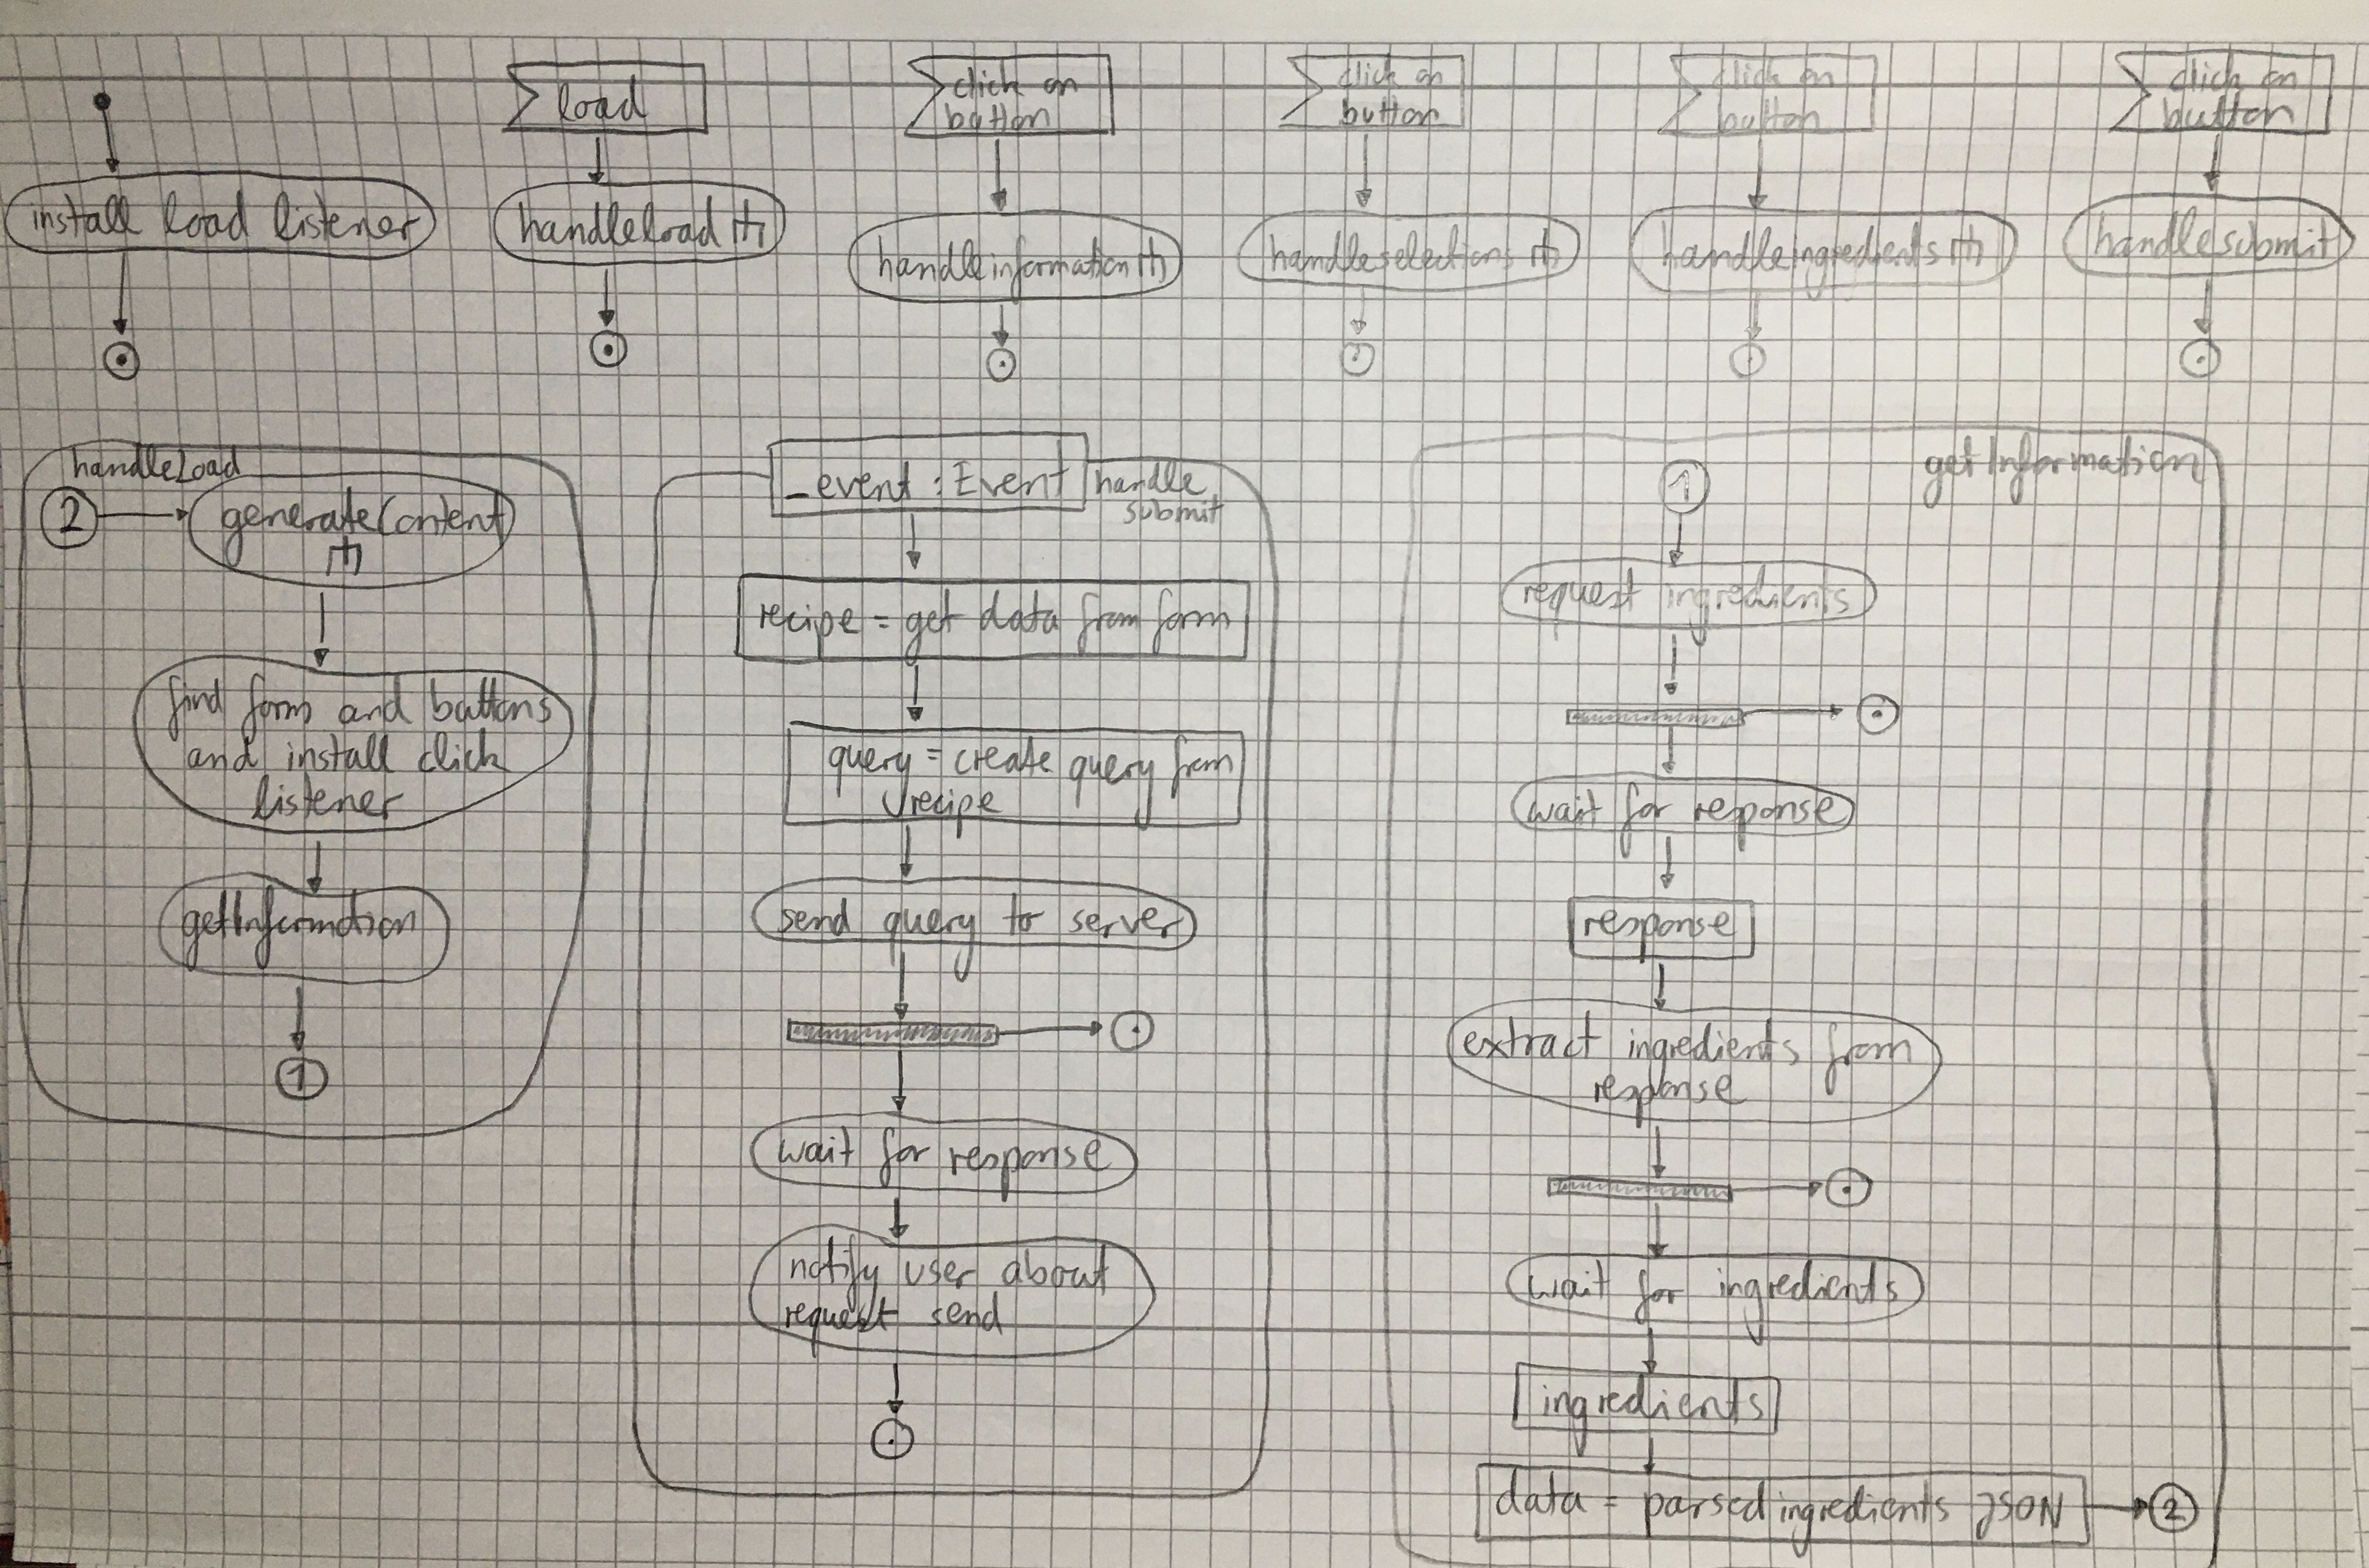 load
click on
button
click on
button
click on
button
click on
button
install load listener
handleload
handleinformation
handleselections
handleingredients
handlesubmit
handleLoad
2
generateContent
find form and buttons
and install click
listener
getInformation
1
_event : Event
handle
submit
recipe = get data from form
query = create query from
recipe
send query to server
wait for response
notify user about
request send
getInformation
1
request ingredients
wait for reponse
response
extract ingredients from
response
wait for ingredients
ingredients
data = parsed ingredients JSON
2